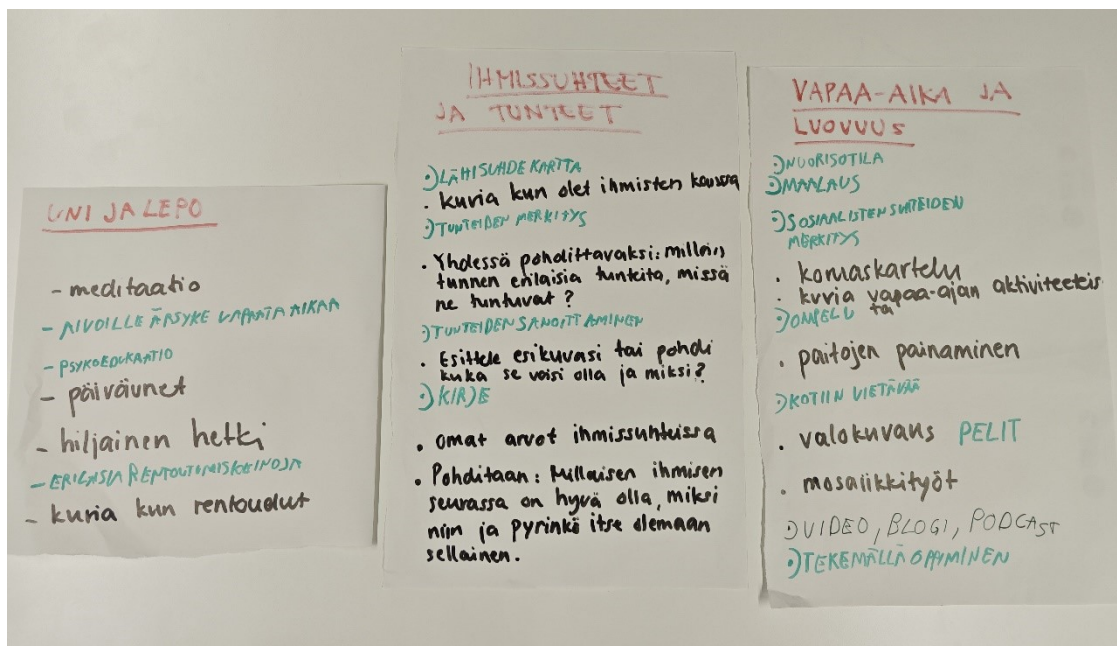 UNI JA LEPO
- meditaatio
- AIVOILLE ÄRSYKE VAPAATA AIKAA
- PSYKOEDUKAATIO
- päiväunet
- hiljainen hetki
- ERILAISIA RENTOUTUMISKEINOJA
- kuvia kun rentoudut
IHMISSUHTEET
JA TUNTEET
LÄHISUHDEKARTTA
• kuvia kun olet ihmisten kanssa
TUNTEIDEN MERKITYS
• Yhdessä pohdittavaksi: milloin
tunnen erilaisia tunteita, missä
ne tuntuvat?
TUNTEIDEN SANOITTAMINEN
• Esittele esikuvasi tai pohdi
kuka se voisi olla ja miksi?
KIRJE
• omat arvot ihmissuhteissa
• Pohditaan: Millaisen ihmisen
seurassa on hyvä olla, miksi
niin ja pyrinkö itse olemaan
sellainen.
VAPAA-AIKA JA
LUOVUUS
NUORISOTILA
MAALAUS
SOSIAALISTEN SUHTEIDEN
MERKITYS
• kornaskartelu
• kuvia vapaa-ajan aktiviteeteis
ta
OMPELU
• paitojen painaminen
KOTIIN VIETÄVÄÄ
• valokuvaus PELIT
• mosaiikkityöt
VIDEO, BLOGI, PODCAST
TEKEMÄLLÄ OPPIMINEN